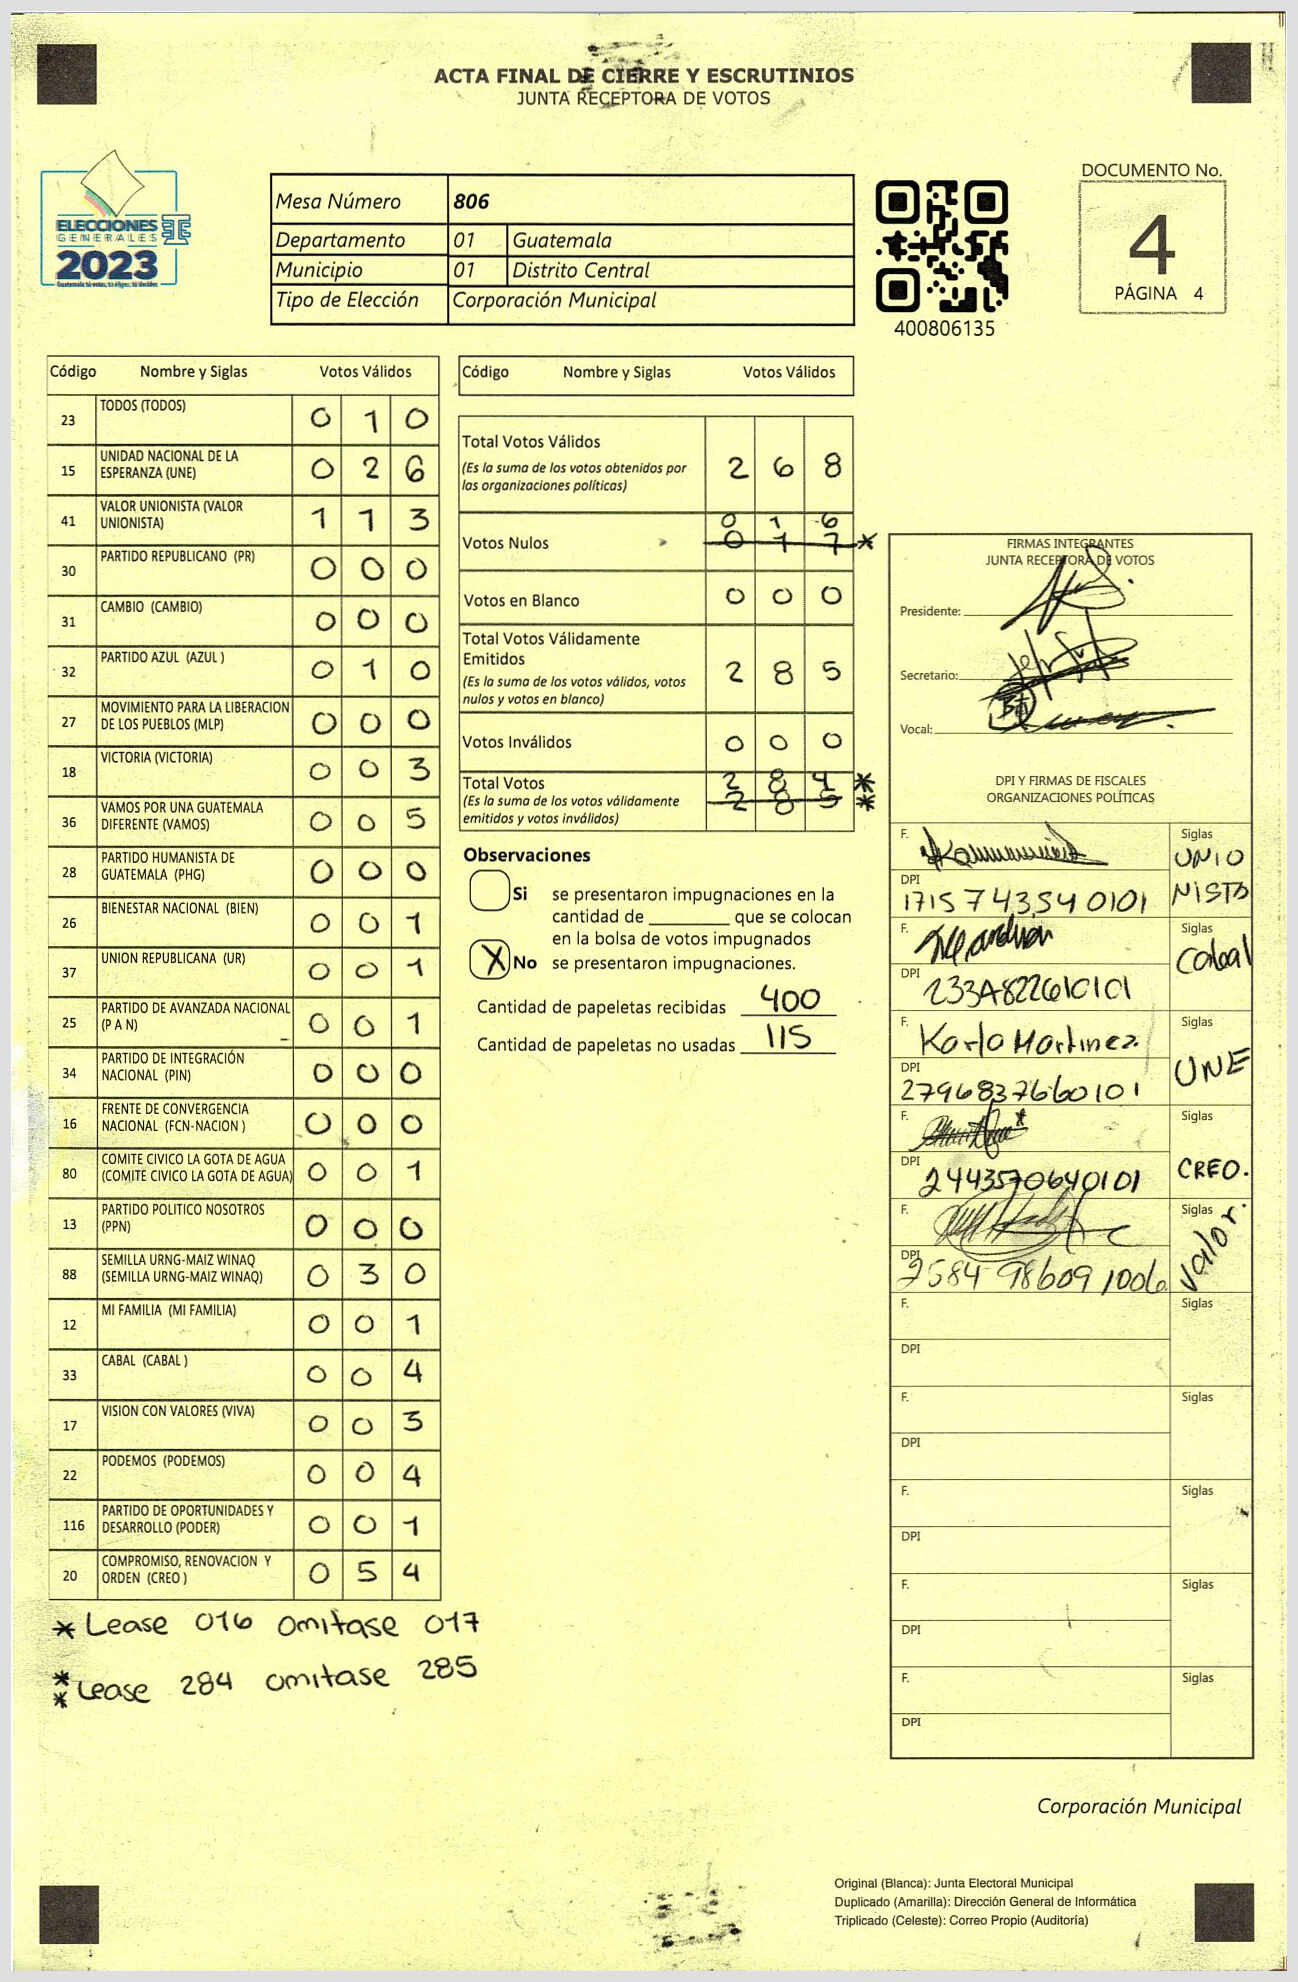 ACTA FINAL DE CIERRE Y ESCRUTINIOS
JUNTA RECEPTORA DE VOTOS
ELECCIONES
GENERALES
2023
Guatemala tú votas, tú eliges, tú decides
Mesa Número 806
Departamento 01 Guatemala
Municipio 01 Distrito Central
Tipo de Elección Corporación Municipal
400806135
DOCUMENTO No.
4
PÁGINA 4
Código Nombre y Siglas Votos Válidos
23 TODOS (TODOS) 0 1 0
15 UNIDAD NACIONAL DE LA
ESPERANZA (UNE) 0 2 6
41 VALOR UNIONISTA (VALOR
UNIONISTA) 1 1 3
30 PARTIDO REPUBLICANO (PR) 0 0 0
31 CAMBIO (CAMBIO) 0 0 0
32 PARTIDO AZUL (AZUL ) 0 1 0
27 MOVIMIENTO PARA LA LIBERACION
DE LOS PUEBLOS (MLP) 0 0 0
18 VICTORIA (VICTORIA) 0 0 3
36 VAMOS POR UNA GUATEMALA
DIFERENTE (VAMOS) 0 0 5
28 PARTIDO HUMANISTA DE
GUATEMALA (PHG) 0 0 0
26 BIENESTAR NACIONAL (BIEN) 0 0 1
37 UNION REPUBLICANA (UR) 0 0 1
25 PARTIDO DE AVANZADA NACIONAL
(P A N) 0 0 1
34 PARTIDO DE INTEGRACIÓN
NACIONAL (PIN) 0 0 0
16 FRENTE DE CONVERGENCIA
NACIONAL (FCN-NACION ) 0 0 0
80 COMITE CIVICO LA GOTA DE AGUA
(COMITE CIVICO LA GOTA DE AGUA) 0 0 1
13 PARTIDO POLITICO NOSOTROS
(PPN) 0 0 0
88 SEMILLA URNG-MAIZ WINAQ
(SEMILLA URNG-MAIZ WINAQ) 0 3 0
12 MI FAMILIA (MI FAMILIA) 0 0 1
33 CABAL (CABAL ) 0 0 4
17 VISION CON VALORES (VIVA) 0 0 3
22 PODEMOS (PODEMOS) 0 0 4
116 PARTIDO DE OPORTUNIDADES Y
DESARROLLO (PODER) 0 0 1
20 COMPROMISO, RENOVACION Y
ORDEN (CREO ) 0 5 4
* Lease 016 omitase 017
** Lease 284 omitase 285
Código Nombre y Siglas Votos Válidos
Total Votos Válidos
(Es la suma de los votos obtenidos por
las organizaciones políticas) 2 6 8
0 1 6
Votos Nulos 0 1 7 *
Votos en Blanco 0 0 0
Total Votos Válidamente
Emitidos
(Es la suma de los votos válidos, votos
nulos y votos en blanco) 2 8 5
Votos Inválidos 0 0 0
Total Votos 2 8 4 *
(Es la suma de los votos válidamente 2 8 5 *
emitidos y votos inválidos)
Observaciones
Si se presentaron impugnaciones en la
cantidad de ________ que se colocan
en la bolsa de votos impugnados
X No se presentaron impugnaciones.
Cantidad de papeletas recibidas 400
Cantidad de papeletas no usadas 115
FIRMAS INTEGRANTES
JUNTA RECEPTORA DE VOTOS
Presidente:
Secretario:
Vocal:
DPI Y FIRMAS DE FISCALES
ORGANIZACIONES POLÍTICAS
F. Siglas
UNIO
NISTA
DPI
1715 74354 0101
F. Siglas
Cabal
DPI
F. Karla Martinez Siglas
UNE
DPI
2796837660101
F. Siglas
CREO.
DPI
2443570640101
F. Siglas
Valor.
DPI
2584 98609 1006
F. Siglas
DPI
F. Siglas
DPI
F. Siglas
DPI
F. Siglas
DPI
F. Siglas
DPI
Corporación Municipal
Original (Blanca): Junta Electoral Municipal
Duplicado (Amarilla): Dirección General de Informática
Triplicado (Celeste): Correo Propio (Auditoría)